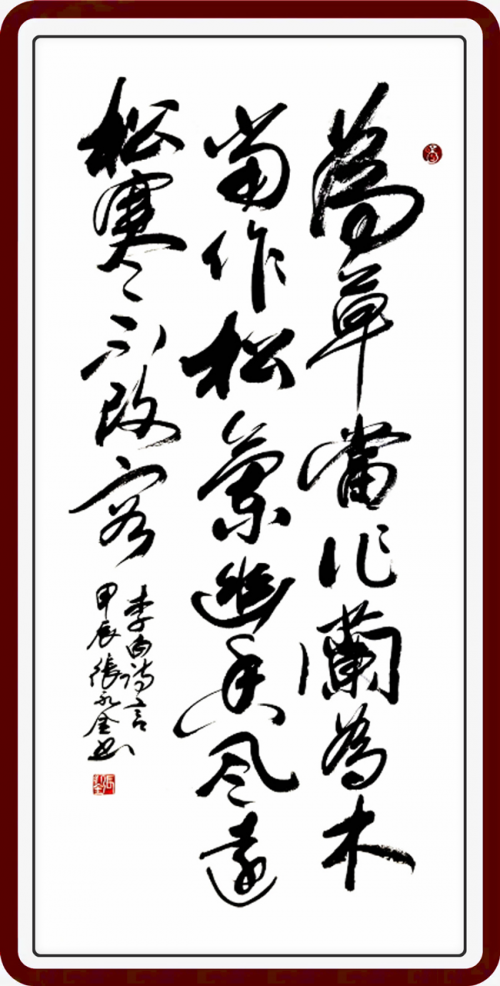 為草當作蘭為木
當作松蘭幽香風遠
松寒不改容
李白詩言
甲辰張永金书